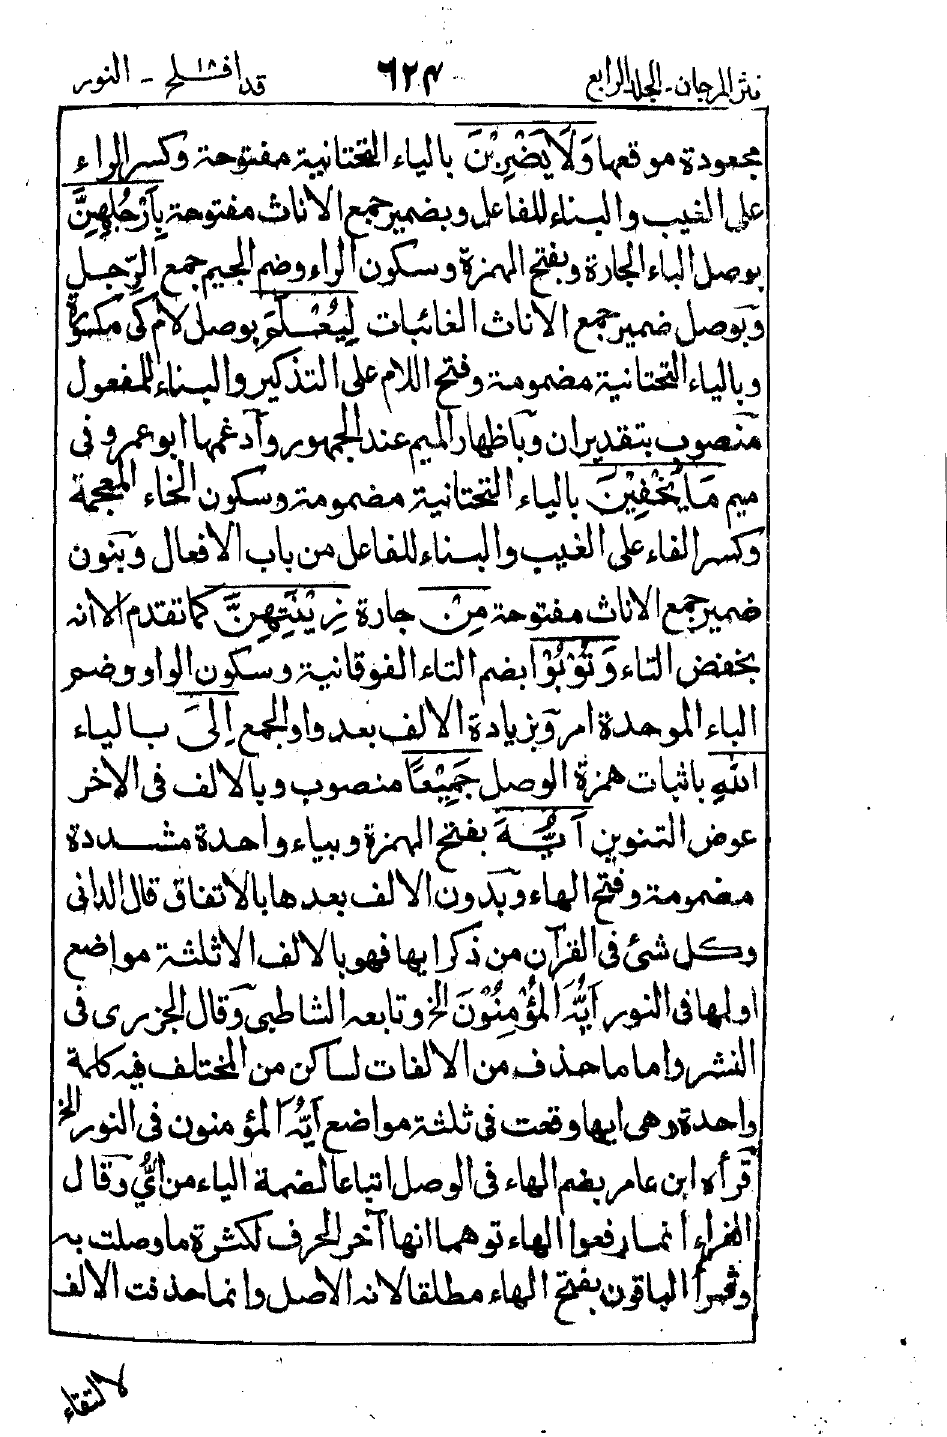 نثر المرجان - الجلد الرابع ٦٢٤ قد افلح ١٨ - النور
مجعودة موقعها وَلَا يَضْرِبْنَ بالياء التحتانية مفتوحة وكسر الراء
على الغيب والبناء للفاعل وبضمير جمع الاناث مفتوحة بِأَرْجُلِهِنَّ
بوصل الباء الجارة وبفتح الهمزة وسكون الراء وضم الجيم جمع الرجل
وبوصل ضمير جمع الاناث الغائبات لِيُعْلَمَ بوصل لام كى مكسورة
وبالياء التحتانية مضمومة وفتح اللام على التذكير والبناء للمفعول
منصوب بتقدير ان وباظهار الميم عند الجمهور وأدغمها ابو عمرو فى
ميم مَا يُخْفِيْنَ بالياء التحتانية مضمومة وسكون الخاء المعجمة
وكسر الفاء على الغيب والبناء للفاعل من باب الافعال وبنون
ضمير جمع الاناث مفتوحة مِنْ جارة زِيْنَتِهِنَّ كما تقدم الا انه
بخفض التاء وَتُوْبُوْا بضم التاء الفوقانية وسكون الواو وضم
الباء الموحدة امر وبزيادة الالف بعد واو الجمع اِلىَ بالياء
اللهِ باثبات همزة الوصل جَمِيْعًا منصوب وبالالف فى الاخر
عوض التنوين أَيُّهَ بفتح الهمزة وبياء واحدة مشددة
مضمومة وفتح الهاء وبدون الالف بعدها بالاتفاق قال الدانى
وكل شئ فى القرآن من ذكر ايها فهو بالالف الا ثلثة مواضع
اولها فى النور أَيُّهَ الْمُؤْمِنُوْنَ الخ وتابعه الشاطبى وقال الجزرى فى
النشر واما ما حذف من الالفات لساكن من المختلف فيه كلمة
واحدة وهى ايها وقعت فى ثلثة مواضع أَيُّهَ المؤمنون فى النور الخ
قرأه ابن عامر بضم الهاء فى الوصل اتباعا لضمة الياء من اىُّ وقال
الفراء انما رفعوا الهاء توهما انها آخر الحرف لكثرة ما وصلت به
وقرأ الباقون بفتح الهاء مطلقا لانه الاصل وانما حذفت الالف
لالتقاء